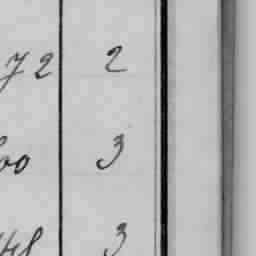 72 2
60 3
48 3